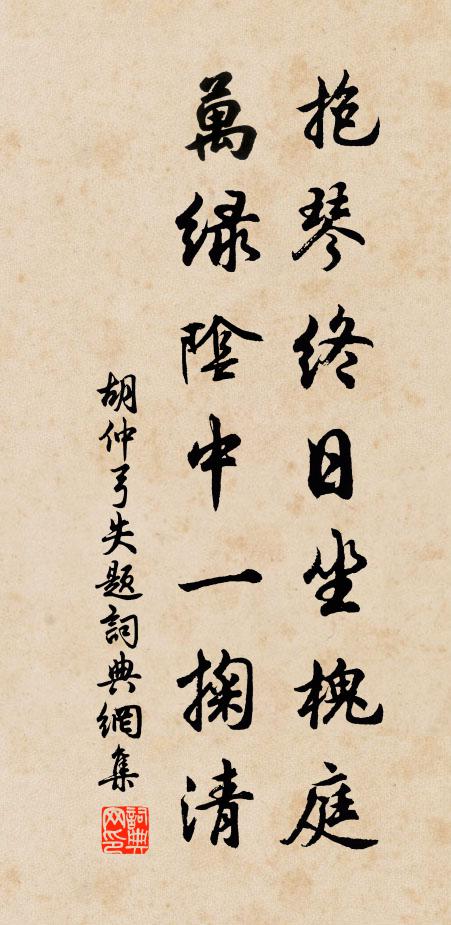 抱琴終日坐槐庭
萬綠陰中一掬清
胡仲弓失題詞典網集
詞典網印